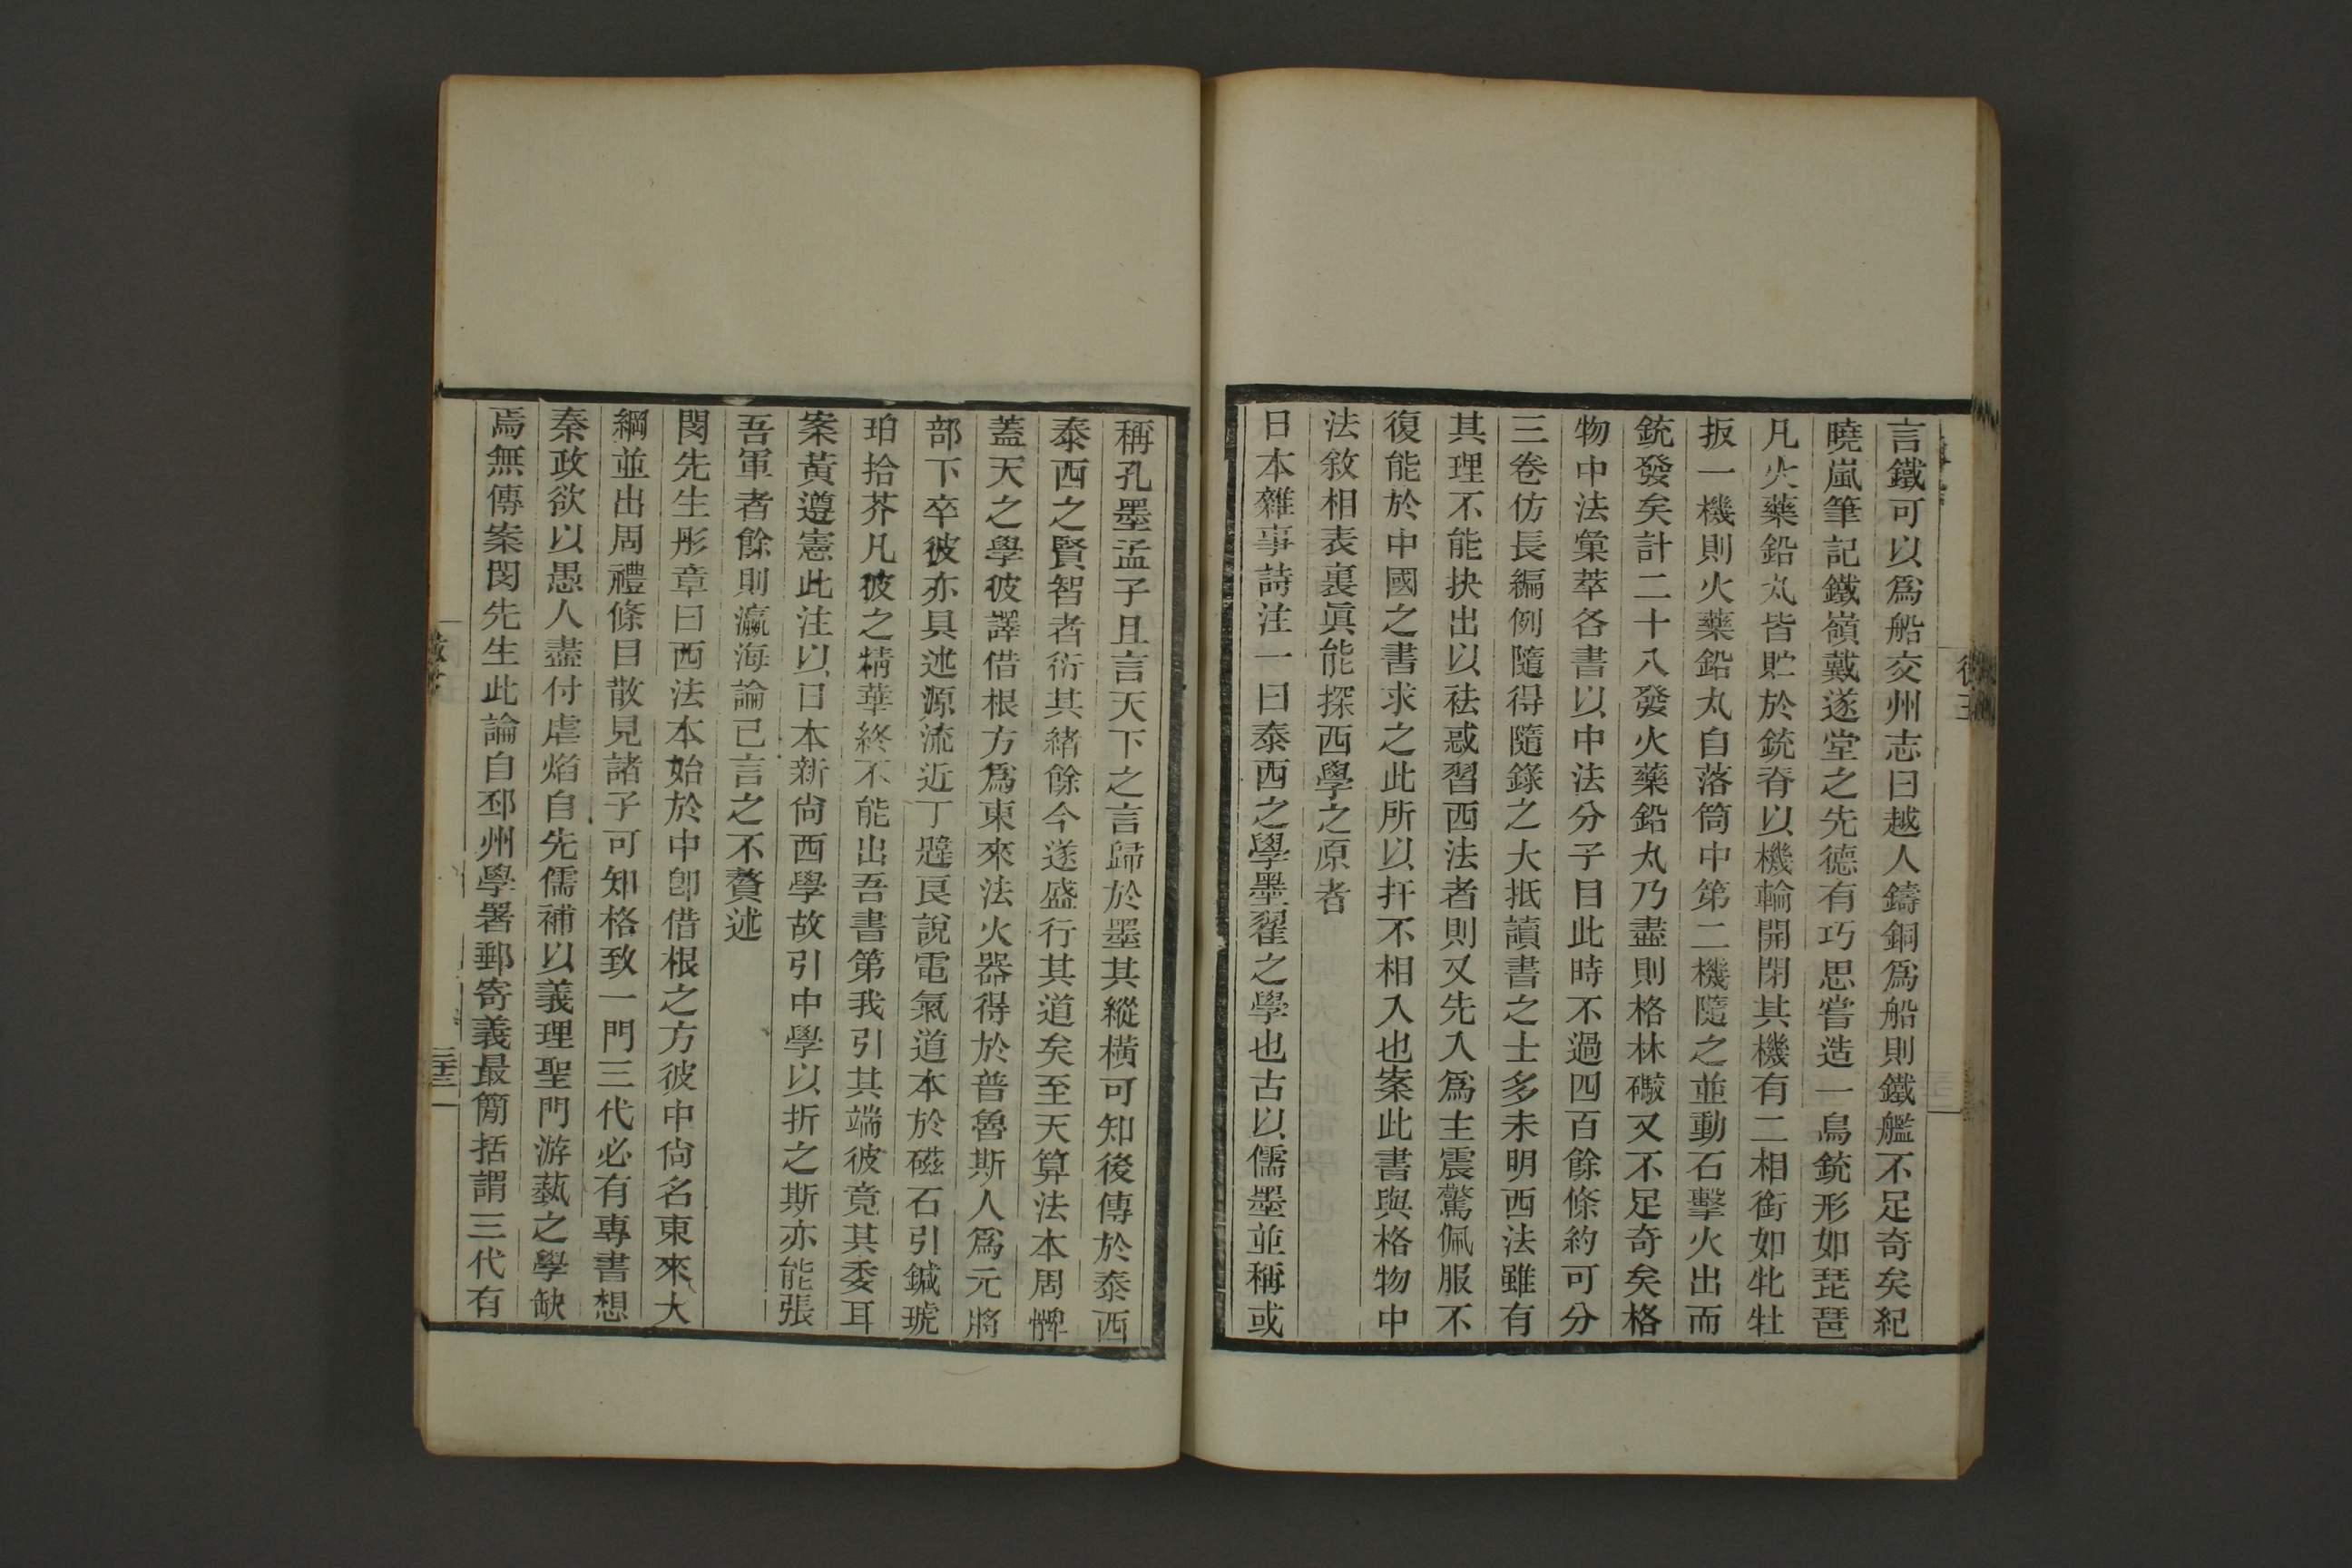 言鐵可以爲船交州志曰越人鑄銅爲船則鐵艦不足奇矣紀
曉嵐筆記鐵嶺戴遂堂之先德有巧思嘗造一鳥銃形如琵琶
凡火藥鉛丸皆貯於銃脊以機輪開閉其機有二相銜如牝牡
扳一機則火藥鉛丸自落筒中第二機隨之並動石擊火出而
銃發矣計二十八發火藥鉛丸乃盡則格林礮又不足奇矣格
物中法彙萃各書以中法分子目此時不過四百餘條約可分
三卷仿長編例隨得隨錄之大抵讀書之士多未明西法雖有
其理不能抉出以袪惑習西法者則又先入爲主震驚佩服不
復能於中國之書求之此所以扞不相入也案此書與格物中
法敘相表裏眞能探西學之原者
日本雜事詩注一曰泰西之學墨翟之學也古以儒墨並稱或
稱孔墨孟子且言天下之言歸於墨其縱橫可知後傳於泰西
泰西之賢智者衍其緒餘今遂盛行其道矣至天算法本周髀
蓋天之學彼譯借根方爲東來法火器得於普魯斯人爲元將
部下卒彼亦具述源流近丁韙良說電氣道本於磁石引鍼琥
珀拾芥凡彼之精華終不能出吾書第我引其端彼竟其委耳
案黃遵憲此注以日本新尙西學故引中學以折之斯亦能張
吾軍者餘則瀛海論已言之不贅述
閔先生彤章曰西法本始於中卽借根之方彼中尙名東來大
綱並出周禮條目散見諸子可知格致一門三代必有專書想
秦政欲以愚人盡付虐焰自先儒補以義理聖門游藝之學缺
焉無傳案閔先生此論自邳州學署郵寄義最簡括謂三代有